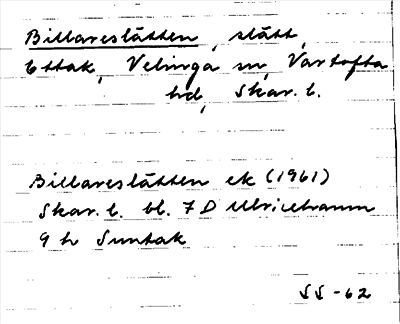 Billareslätten, slätt,
Ettak, Velinga sn, Vartofta
hd, Skar. l.
Billareslätten ek (1961)
Skar. l. bl. 7 D Ulricehamn
9 h Suntak
SS -62